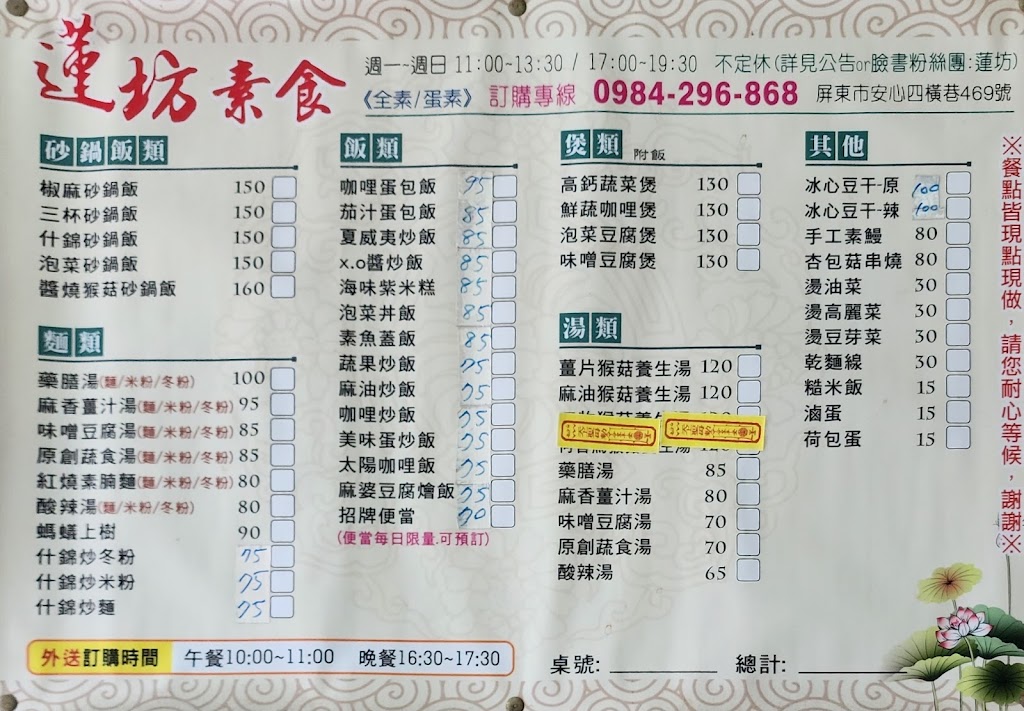 蓮坊素食
週一~週日 11:00~13:30 / 17:00~19:30 不定休(詳見公告or臉書粉絲團:蓮坊)
《全素/蛋素》 訂購專線 0984-296-868 屏東市安心四橫巷469號
砂鍋飯類
椒麻砂鍋飯 150
三杯砂鍋飯 150
什錦砂鍋飯 150
泡菜砂鍋飯 150
醬燒猴菇砂鍋飯 160
麵類
藥膳湯(麵/米粉/冬粉) 100
麻香薑汁湯(麵/米粉/冬粉) 95
味噌豆腐湯(麵/米粉/冬粉) 85
原創蔬食湯(麵/米粉/冬粉) 85
紅燒素腩麵(麵/米粉/冬粉) 80
酸辣湯(麵/米粉/冬粉) 80
螞蟻上樹 90
什錦炒冬粉 75
什錦炒米粉 75
什錦炒麵 75
飯類
咖哩蛋包飯 95
茄汁蛋包飯 85
夏威夷炒飯 85
x.o醬炒飯 85
海味紫米糕 85
泡菜丼飯 85
素魚蓋飯 85
蔬果炒飯 75
麻油炒飯 75
咖哩炒飯 75
美味蛋炒飯 75
太陽咖哩飯 75
麻婆豆腐燴飯 75
招牌便當 70
(便當每日限量.可預訂)
煲類 附飯
高鈣蔬菜煲 130
鮮蔬咖哩煲 130
泡菜豆腐煲 130
味噌豆腐煲 130
湯類
薑片猴菇養生湯 120
麻油猴菇養生湯 120
藥膳湯 85
麻香薑汁湯 80
味噌豆腐湯 70
原創蔬食湯 70
酸辣湯 65
其他
冰心豆干-原 100
冰心豆干-辣 100
手工素鰻 80
杏包菇串燒 80
燙油菜 30
燙高麗菜 30
燙豆芽菜 30
乾麵線 30
糙米飯 15
滷蛋 15
荷包蛋 15
※餐點皆現點現做，請您耐心等候，謝謝※
外送訂購時間 午餐10:00~11:00 晚餐16:30~17:30
桌號: 總計: